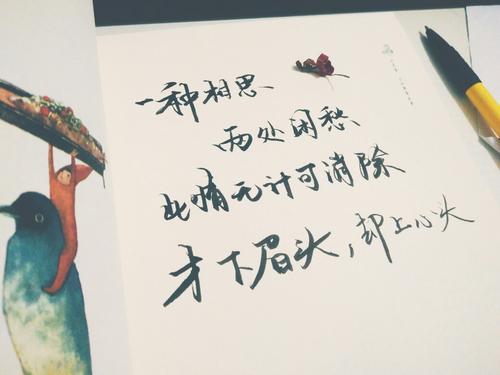 一种相思
两处闲愁
此情无计可消除
才下眉头，却上心头